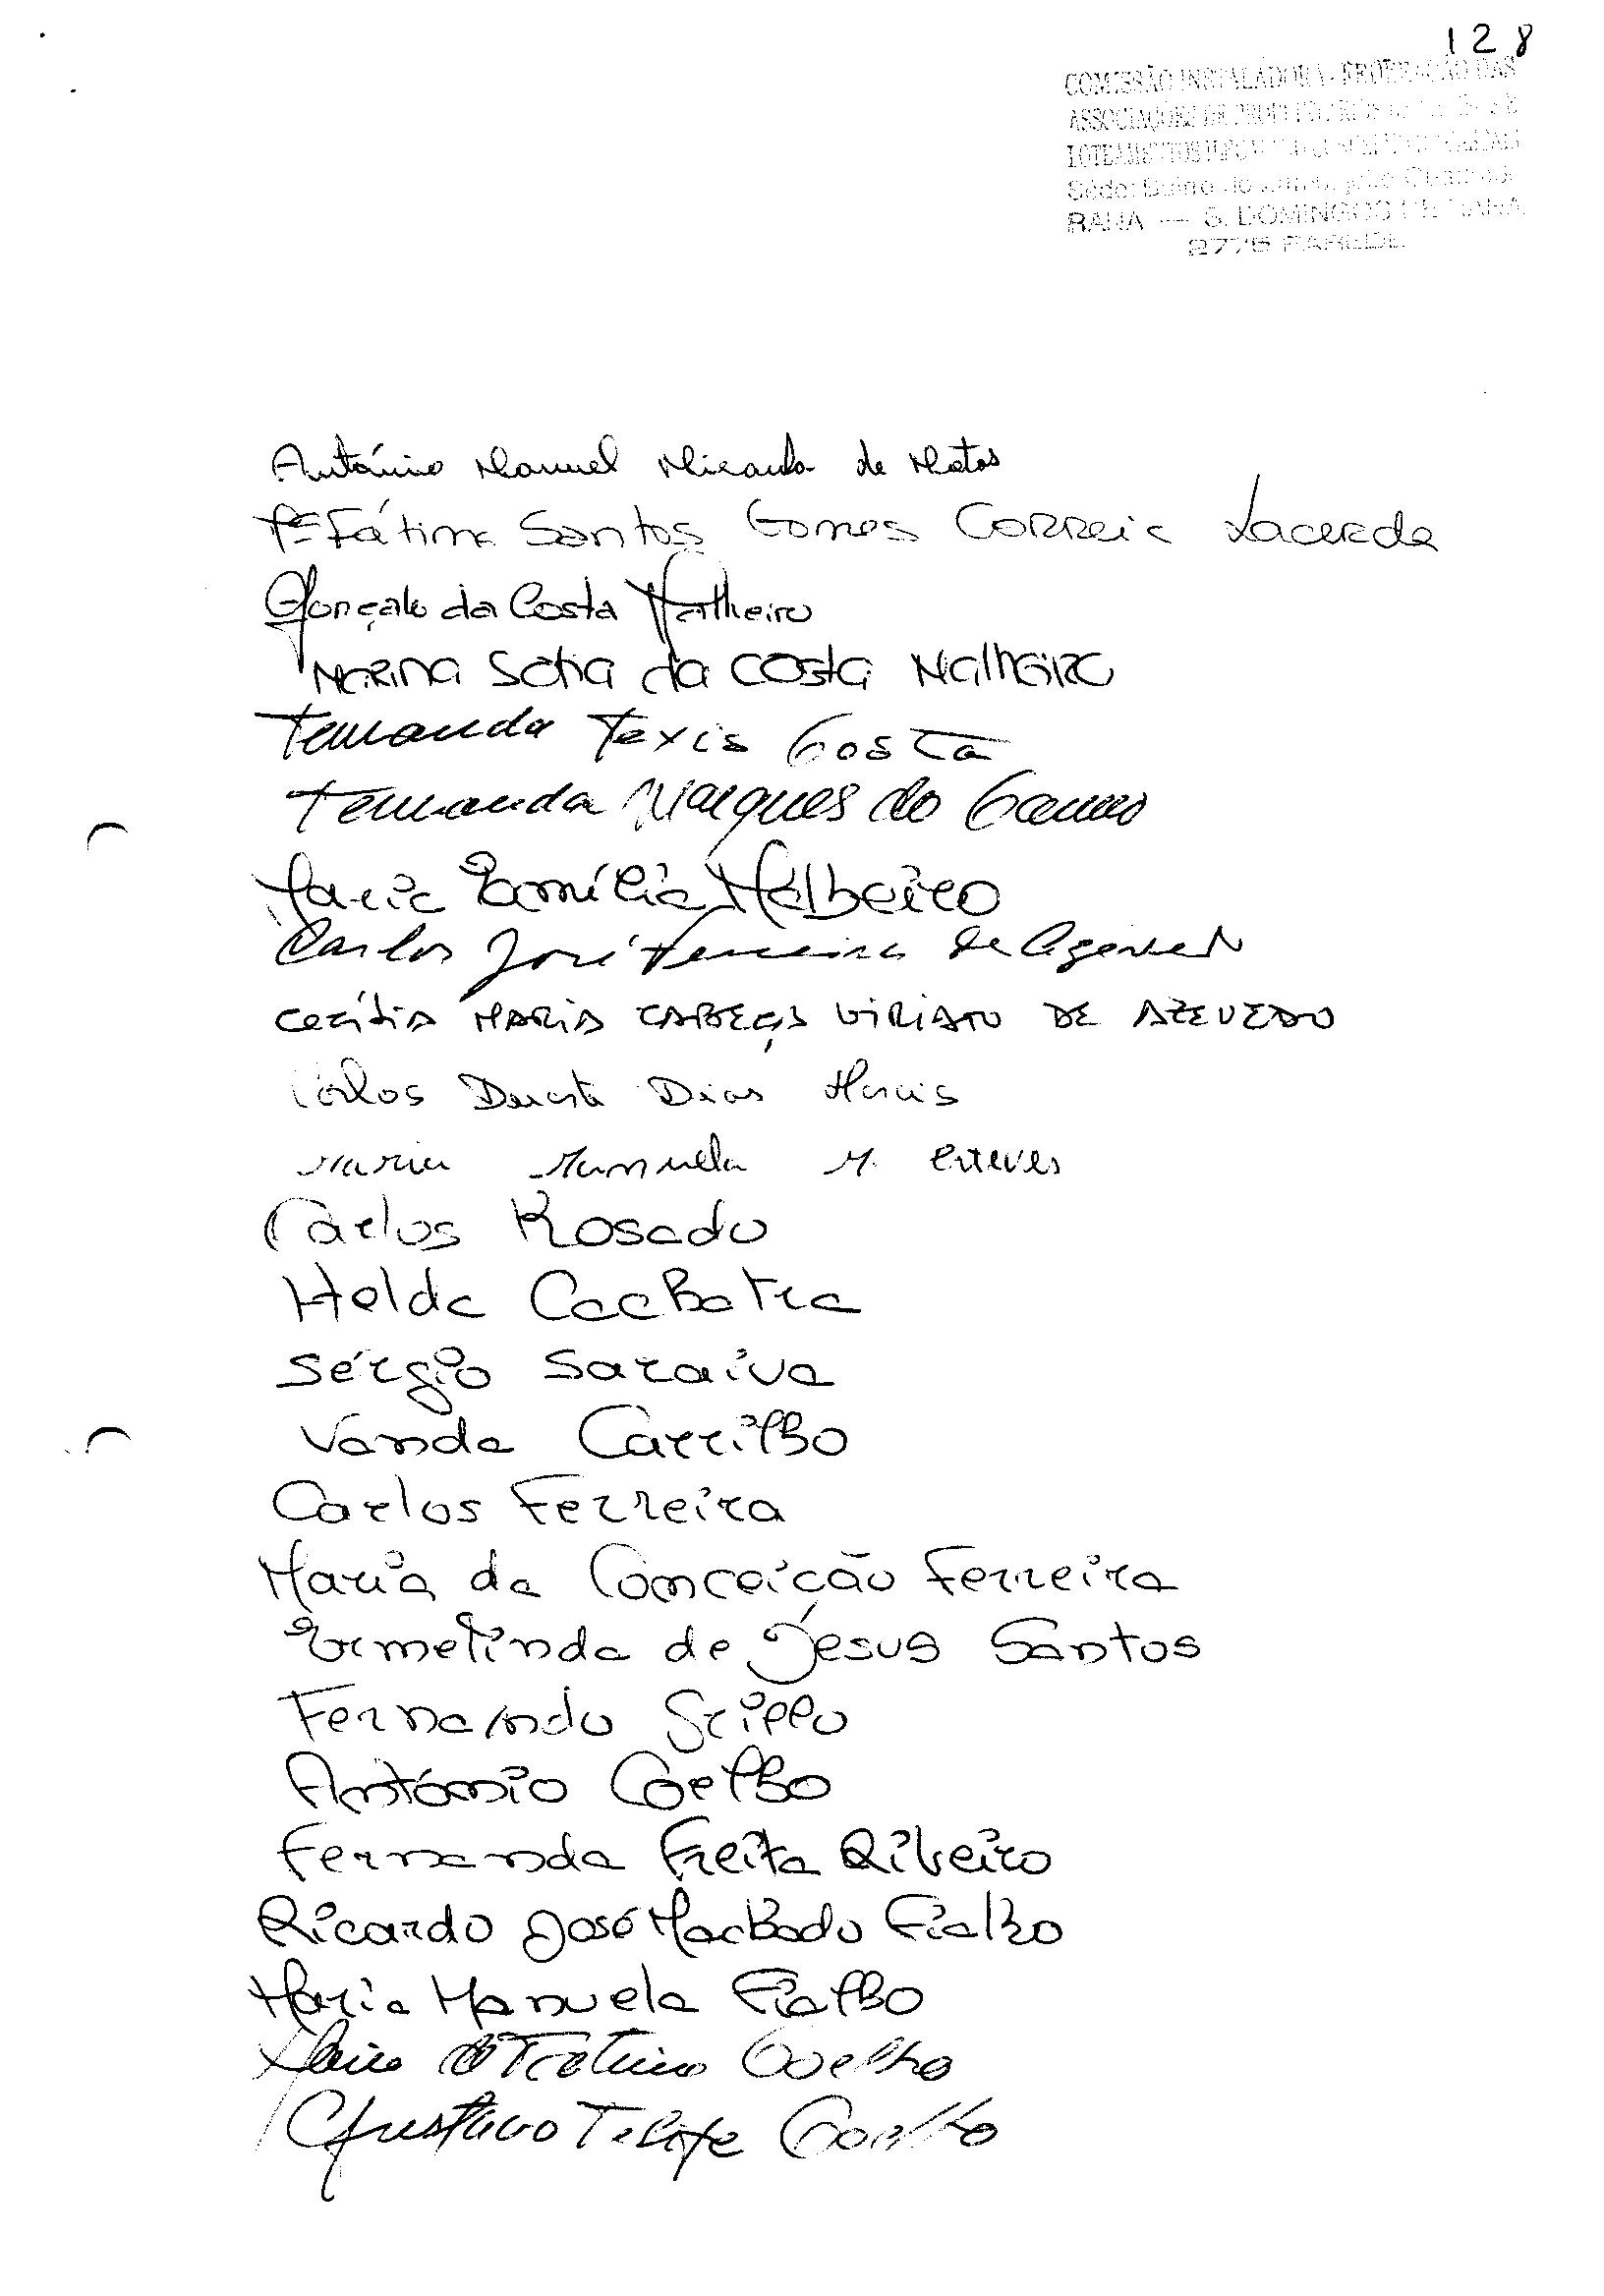 128
COMISSÃO INSTALADORA - FEDERAÇÃO DAS
ASSOCIAÇÕES DE
LOTEAMENTOS
Sede: Bairro do
RANA — S. DOMINGOS DE RANA
2775 PAREDE
António Manuel Miranda de Matos
Mª Fátima Santos Gomes Correia Lacerda
Gonçalo da Costa Malheiro
Marina Sofia da Costa Malheiro
Fernanda Texis Costa
Fernanda Marques do Carmo
Maria Emília Malheiro
Carlos José Ferreira de Azevedo
Cecítia MARIA CABEÇAS VIRIATO DE AZEVEDO
Carlos Duarte Dias
Maria Manuela M. Esteves
Carlos Rosado
Helda Cachatra
Sérgio Saraiva
Vanda Carrilho
Carlos Ferreira
Maria da Conceição Ferreira
Ermelinda de Jesus Santos
Fernando Grillo
António Coelho
Fernanda Freita Ribeiro
Ricardo José Machado Fialho
Maria Manuela Fialho
Coelho
Gustavo Felipe Coelho